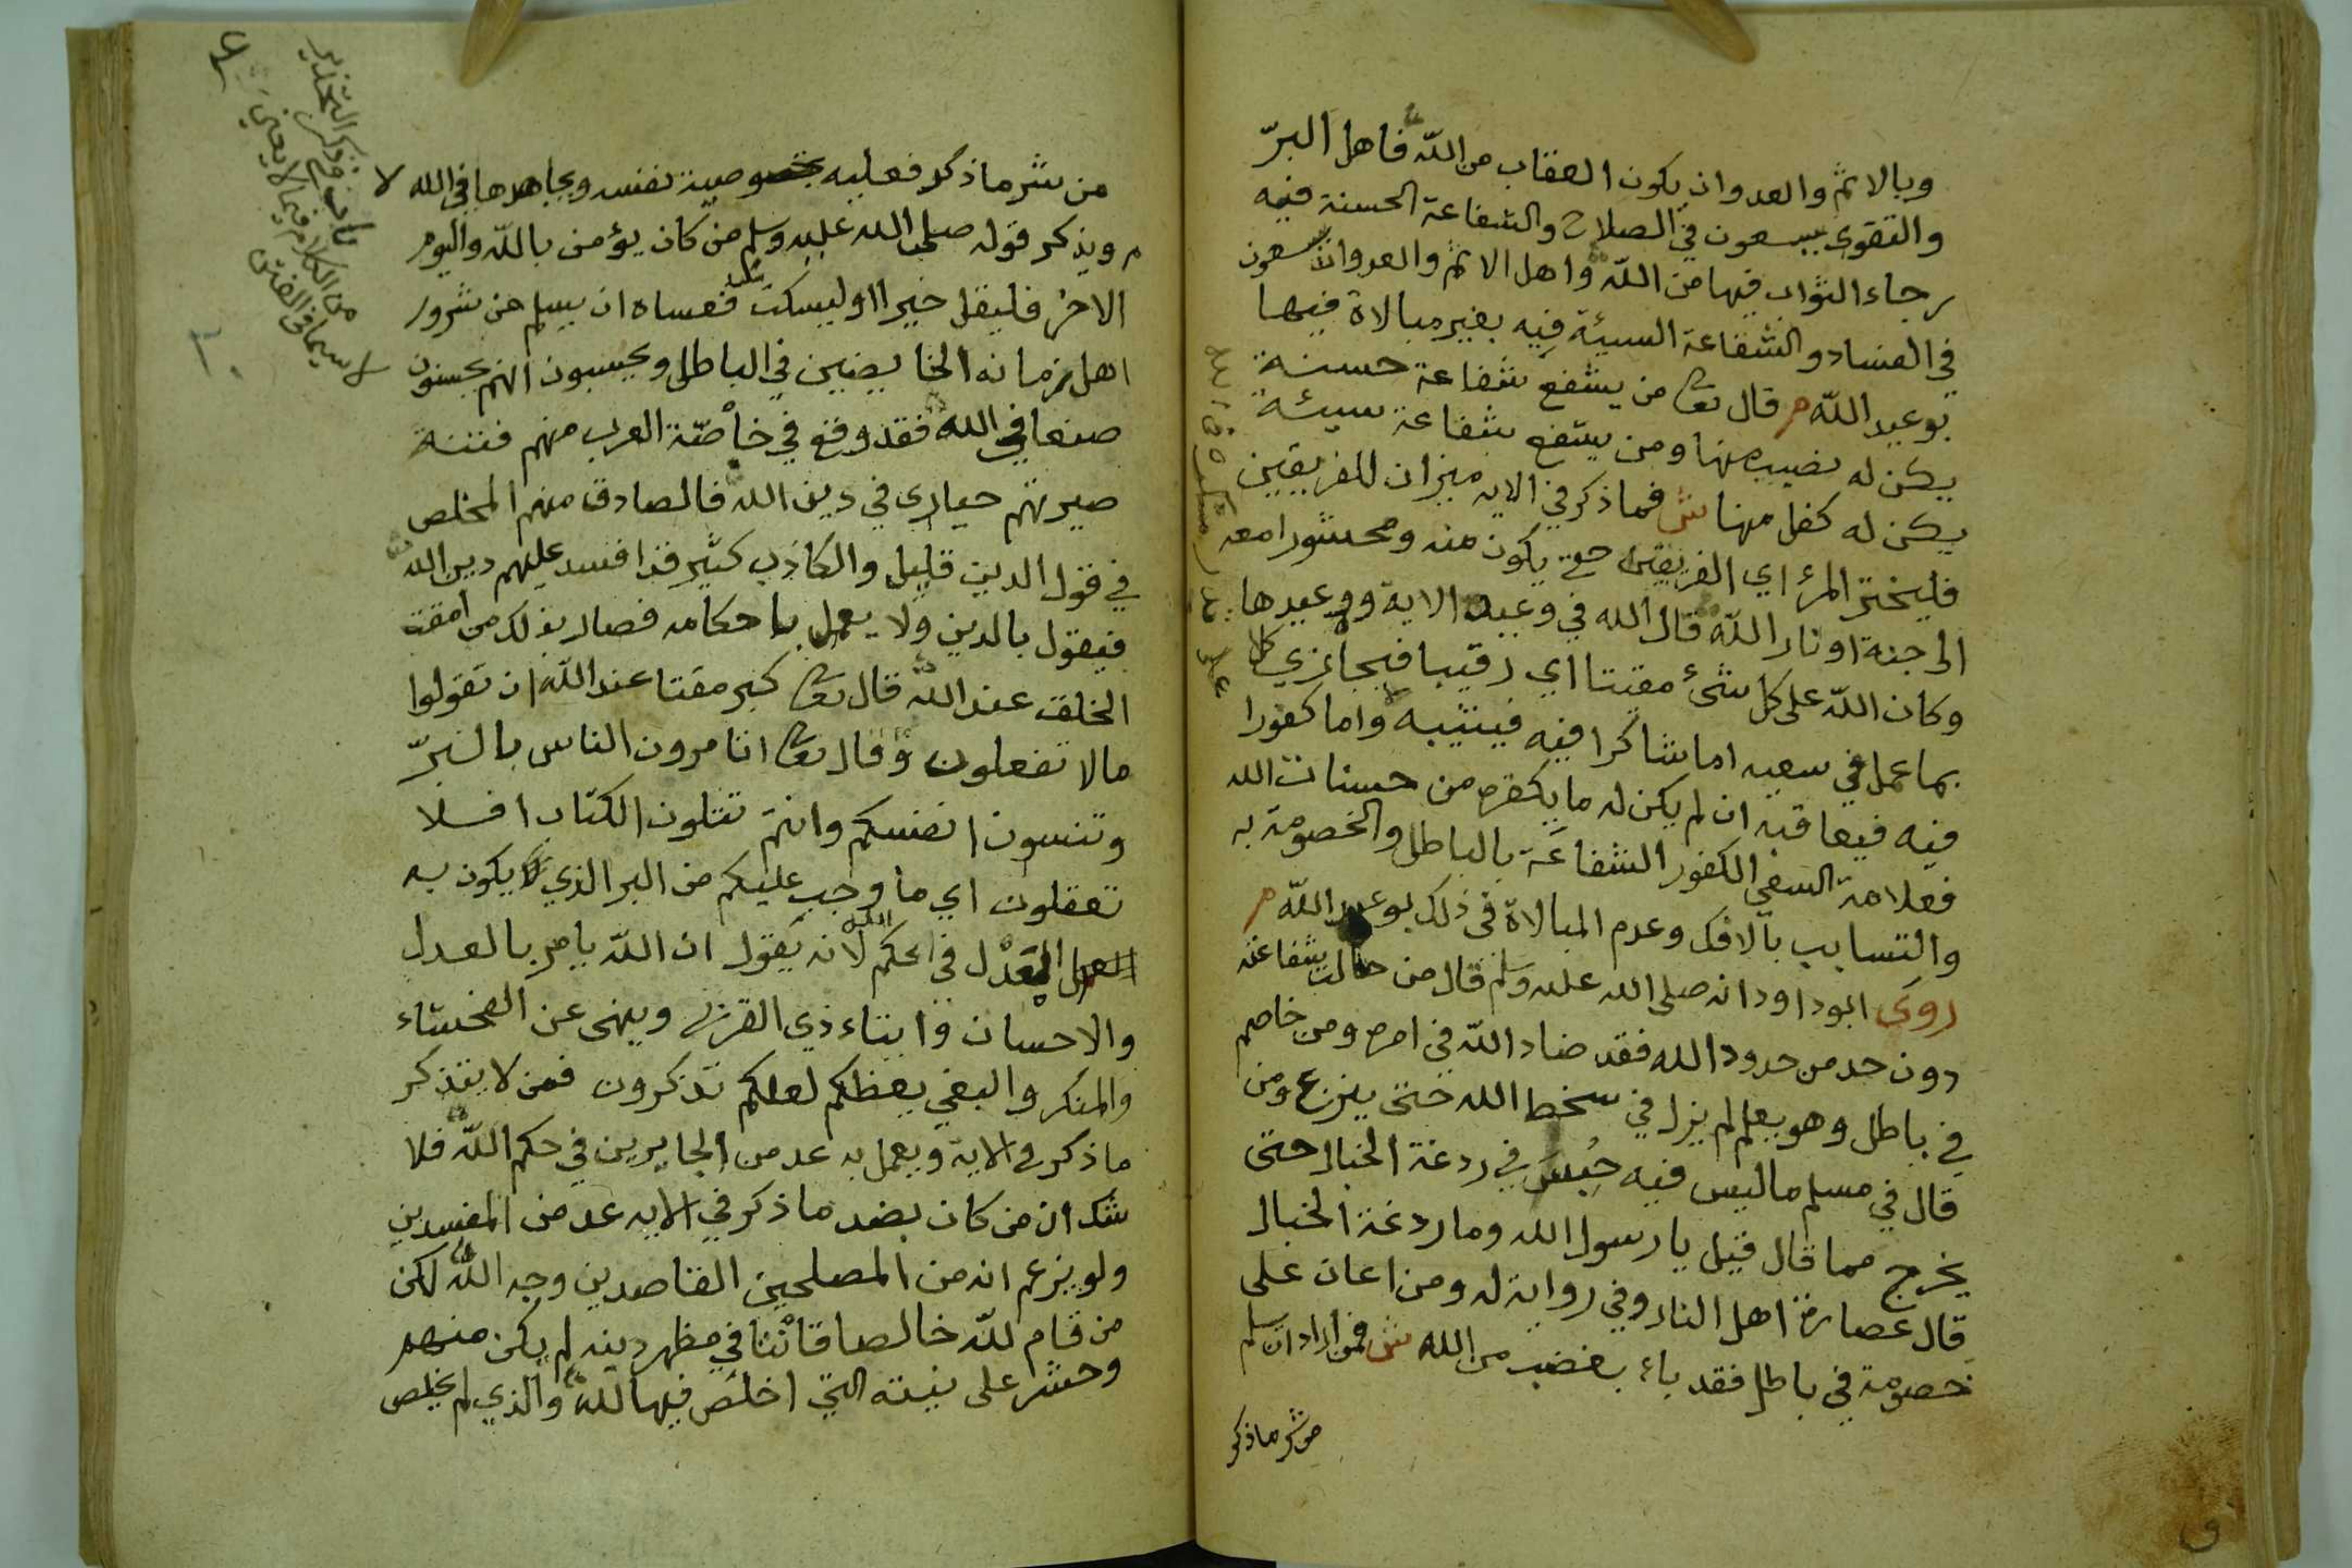 وبالاثم والعدوان يكون العقاب من الله فاهل البرّ
والتقوى يسعون في الصلاح والشفاعة الحسنة فيه
رجاء الثواب فيها من الله واهل الاثم والعدوان يسعون
في الفساد والشفاعة السيئة فيه بغير مبالاة فيها
بوعيد الله م قال تعا من يشفع شفاعة حسنة
يكن له نصيب منها ومن يشفع شفاعة سيئة
يكن له كفل منها ش فما ذكر في الايه ميزان للفريقين
فليختر المرء اي الفريقين حتى يكون منه ومحشورا معه
الى جنة او نار الله قال الله في وعيد الاية ووعيدها
وكان الله على كل شئ مقيتا اي رقيبا فيجازي كل
بما عمل في سعيه اما شاكرا فيه فيثيبه واما كفورا
فيه فيعاقبه ان لم يكن له ما يكفره من حسنات الله
فعلامة السعي الكفور الشفاعة بالباطل والخصومة به
والتسابب بالافك وعدم المبالاة في ذلك بوعيد الله م
روى ابوداود انه صلى الله عليه وسلم قال من حالت شفاعته
دون حد من حدود الله فقد ضاد الله في امره ومن خاصم
في باطل وهو يعلم لم يزل في سخط الله حتى ينزع ومن
قال في مسلم ما ليس فيه حُبِسَ في ردغة الخبال حتى
يخرج مما قال قيل يا رسول الله وما ردغة الخبال
قال عصارة اهل النار وفي رواية له ومن اعان على
خصومة في باطل فقد باء بغضب من الله ش فمن اراد ان يسلم
من شر ما ذكر
من شر ما ذكر فعليه بخصوصية نفسه ويجاهدها في الله
ويذكر قوله صلى الله عليه وسلم من كان يؤمن بالله واليوم
الاخر فليقل خيرا او ليسكت فعساه ان يسلم من شرور
اهل زمانه الخايضين في الباطل ويحسبون انهم يحسنون
صنعا في الله فقد وقع في خاصّة العرب منهم فتنة
صيرتهم حيارى في دين الله فالصادق منهم المخلص
في قول الدين قليل والكاذب كثير قد افسد عليهم دين الله
فيقول بالدين ولا يعمل باحكامه فصار بذلك من امقت
الخلق عند الله قال تعا كبر مقتا عند الله ان تقولوا
مالا تفعلون وقال تعا اتامرون الناس بالبرّ
وتنسون انفسكم وانتم تتلون الكتاب افلا
تعقلون اي ما وجب عليكم من البر الذي لا يكون به
العدل في الحكم لانه يقول ان الله يامر بالعدل
والاحسان وايتاء ذي القربى وينهى عن الفحشاء
والمنكر والبغي يعظكم لعلكم تذكرون فمن لا يتذكر
ما ذكر في الاية ويعمل به عد من الجايرين في حكم الله فلا
شك ان من كان بضد ما ذكر في الايه عد من المفسدين
ولو يزعم انه من المصلحين القاصدين وجه الله لكن
من قام لله خالصا قانتا في مظهر دينه لم يكن منهم
وحشر على نيته التي اخلص فيها لله والذي لم يخلص
من الكلام فيما لا يعني
لا سيما في الفتن
٣٠